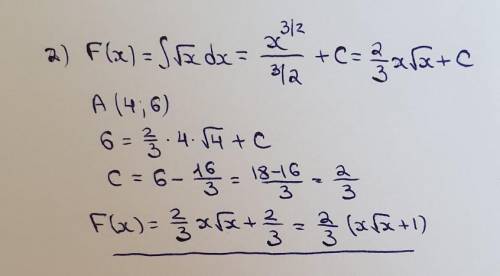 2) F(x) = ∫√x dx = x^(3/2) / (3/2) + C = 2/3 x√x + C
A (4; 6)
6 = 2/3 · 4 · √4 + C
C = 6 - 16/3 = (18-16)/3 = 2/3
F(x) = 2/3 x√x + 2/3 = 2/3 (x√x + 1)